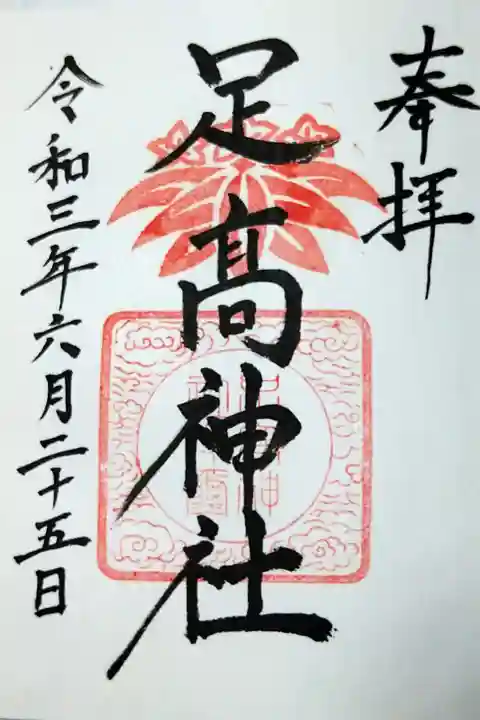 奉拝
足髙神社
令和三年六月二十五日